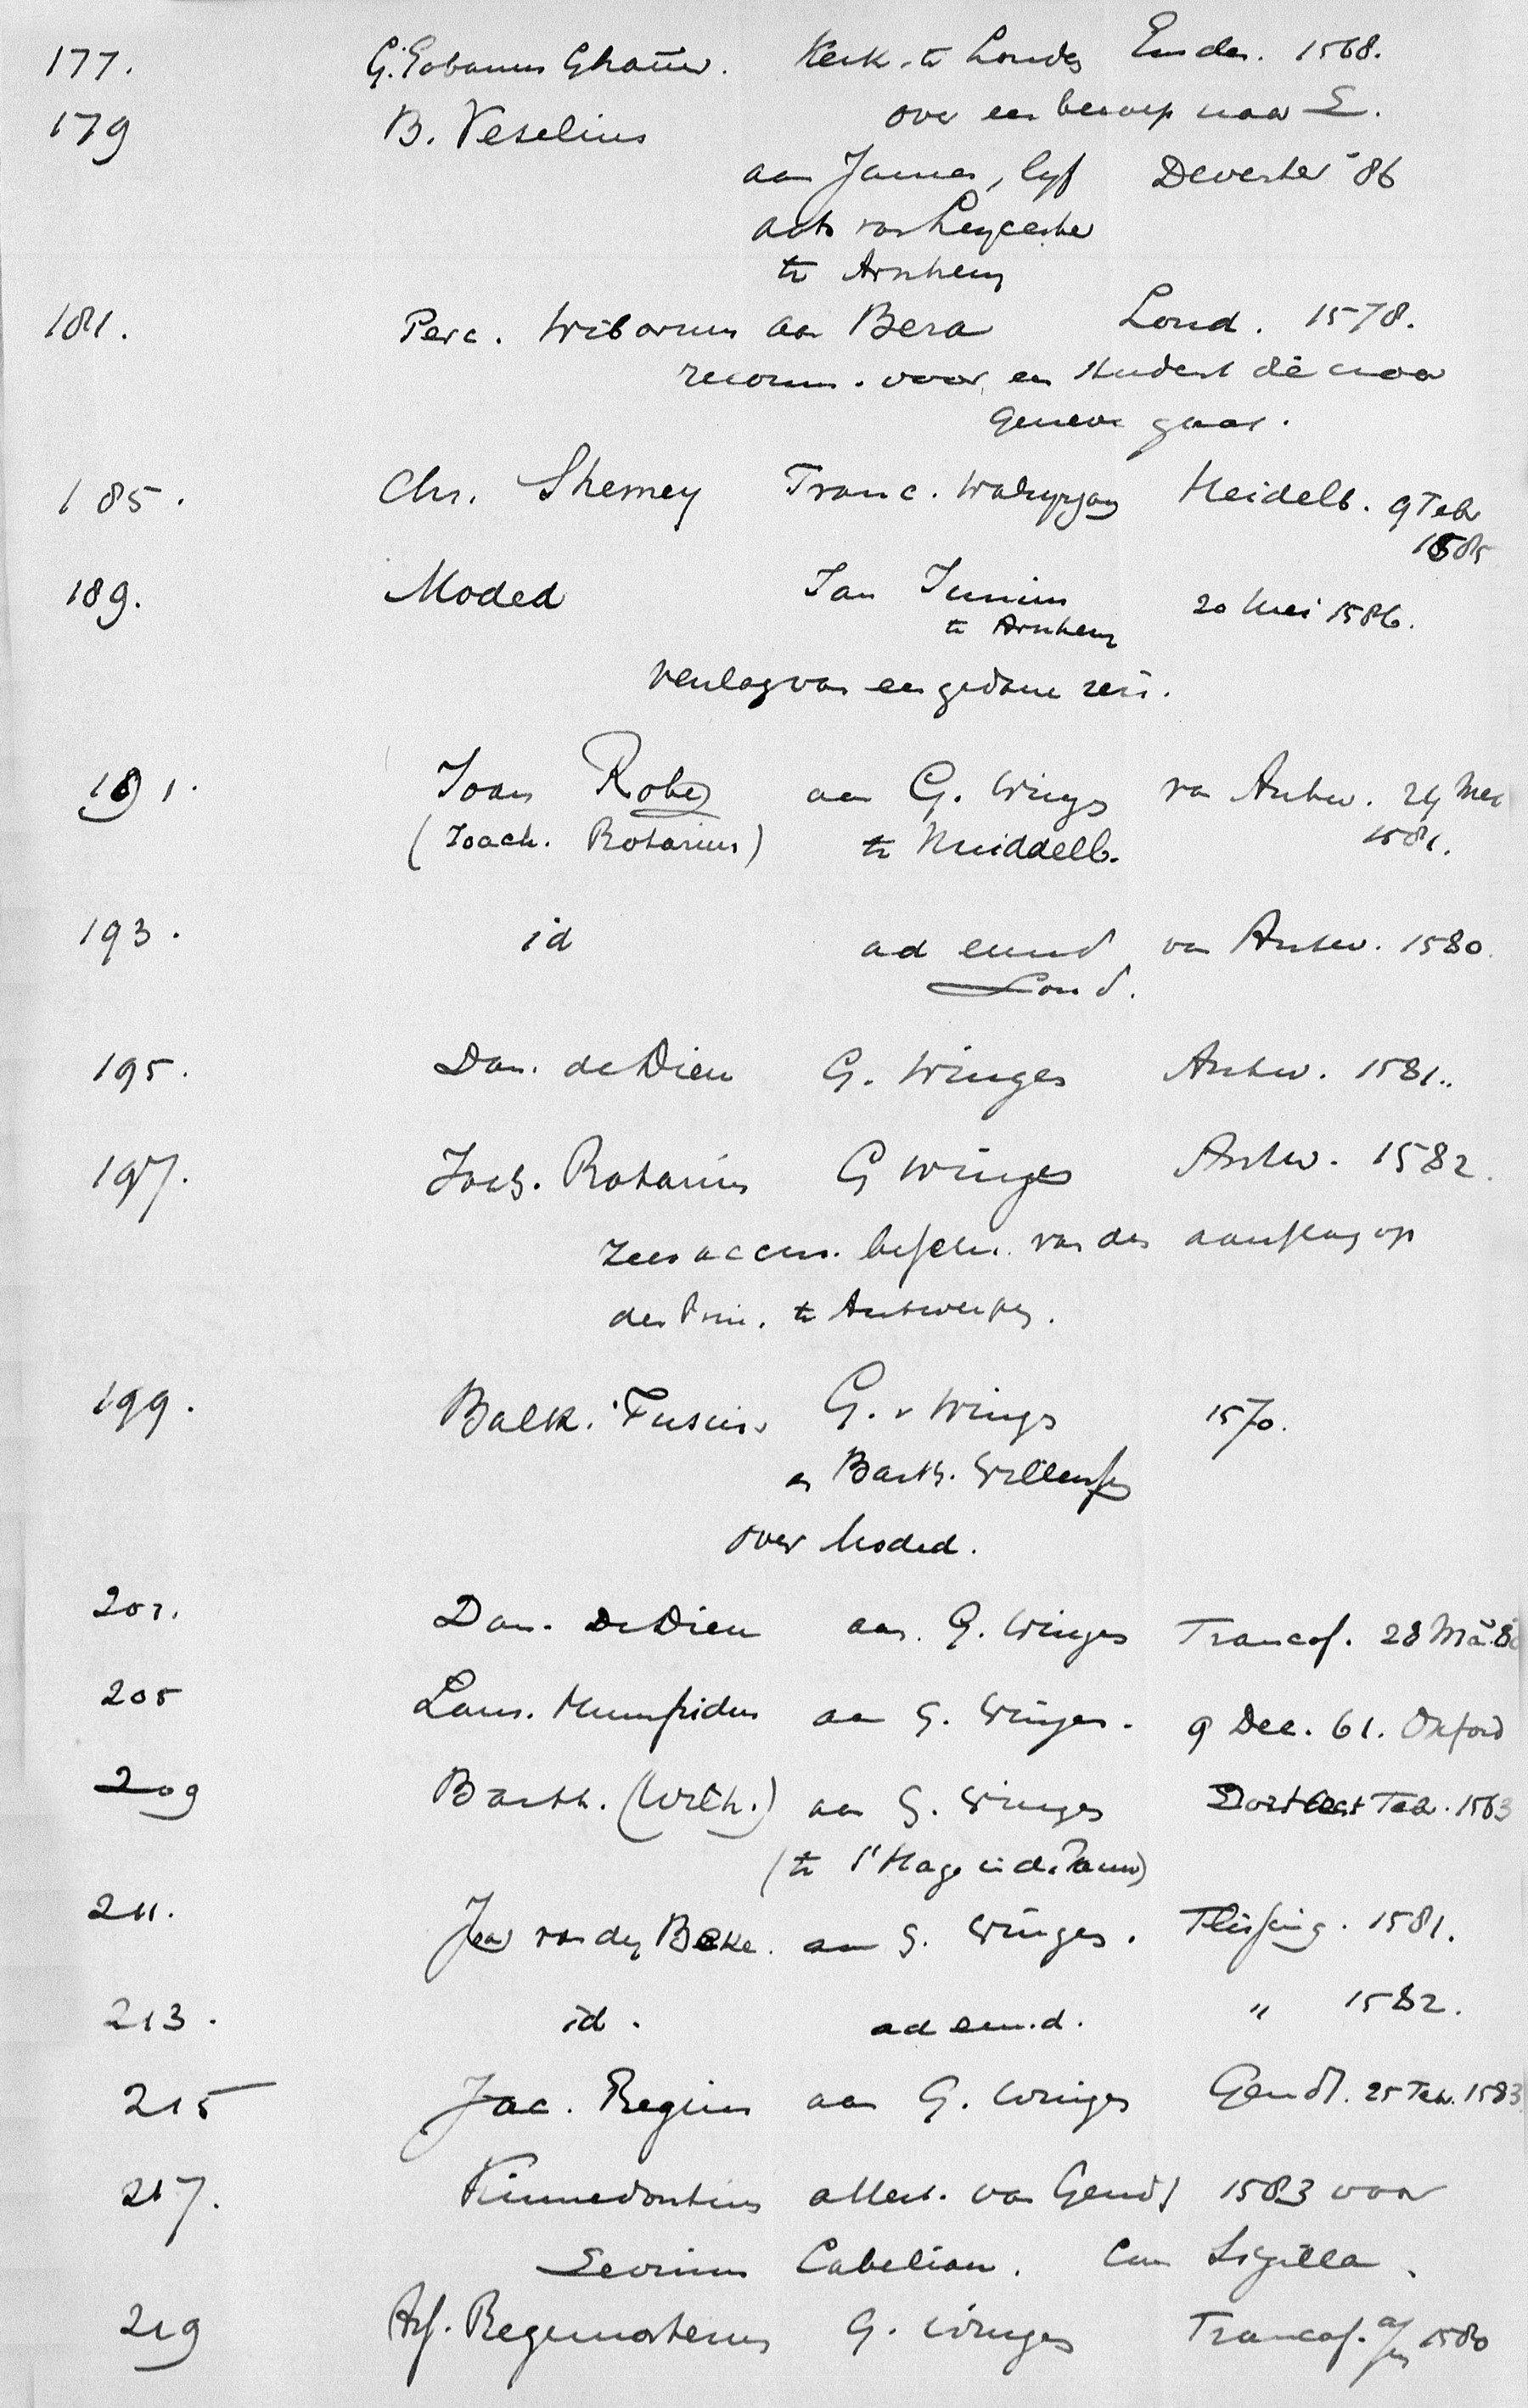 177. G. Eobanus Ghaūw. Kerk. te Londen Emden. 1568.
over een beroep naar E.
179 B. Veselius
aan James, lyf Deventer '86
arts van Leycester
te Arnhem
181. Perc. Wiborum aan Beza Lond. 1578.
recomm. voor een student die naar
Geneve gaat.
185. Chr. Shemey Franc. Heidelb. 9 Feb
1585
189. Moded Jan Junius 20 Mei 1586.
te Arnhem
verslag van een gedane reis.
191. Joan Robez aan G. Wings van Antw. 24 Mei
(Joach. Rotarius) te Middelb. 1581.
193. id ad eund van Antw. 1580.
Lond.
195. Dan. de Dieu G. Winges Antw. 1581.
197. Joch. Rotarius G Winges Antw. 1582.
Zeer accur. beschr. van den aanslag op
den Prin. te Antwerpen.
199. Balth. Fusius G. v Wings 1570.
en Barth. Willemsz
over Moded.
201. Dan. De Dieu aan G. Winges Francof. 28 Ma. 80
205 Laur. Humfridus aan G. Winges. 9 Dec. 61. Oxford
209 Barth. (Wilh.) aan G. Winges Dordrecht Feb. 1563
(te 's Hage in de)
211. Jan van der Beke. aan G. Winges. Vlissing. 1581.
213. id. ad eun.d. " 1582.
215 Jac. Regius aan G. Winges Gendt. 25 Feb. 1583
217. Kimedontius attest. van Gendt 1583 voor
Sevrinus Cabeliau. Cum Sigilla.
219 Ass. Regemorterus G. Winges Francof. a/M 1580